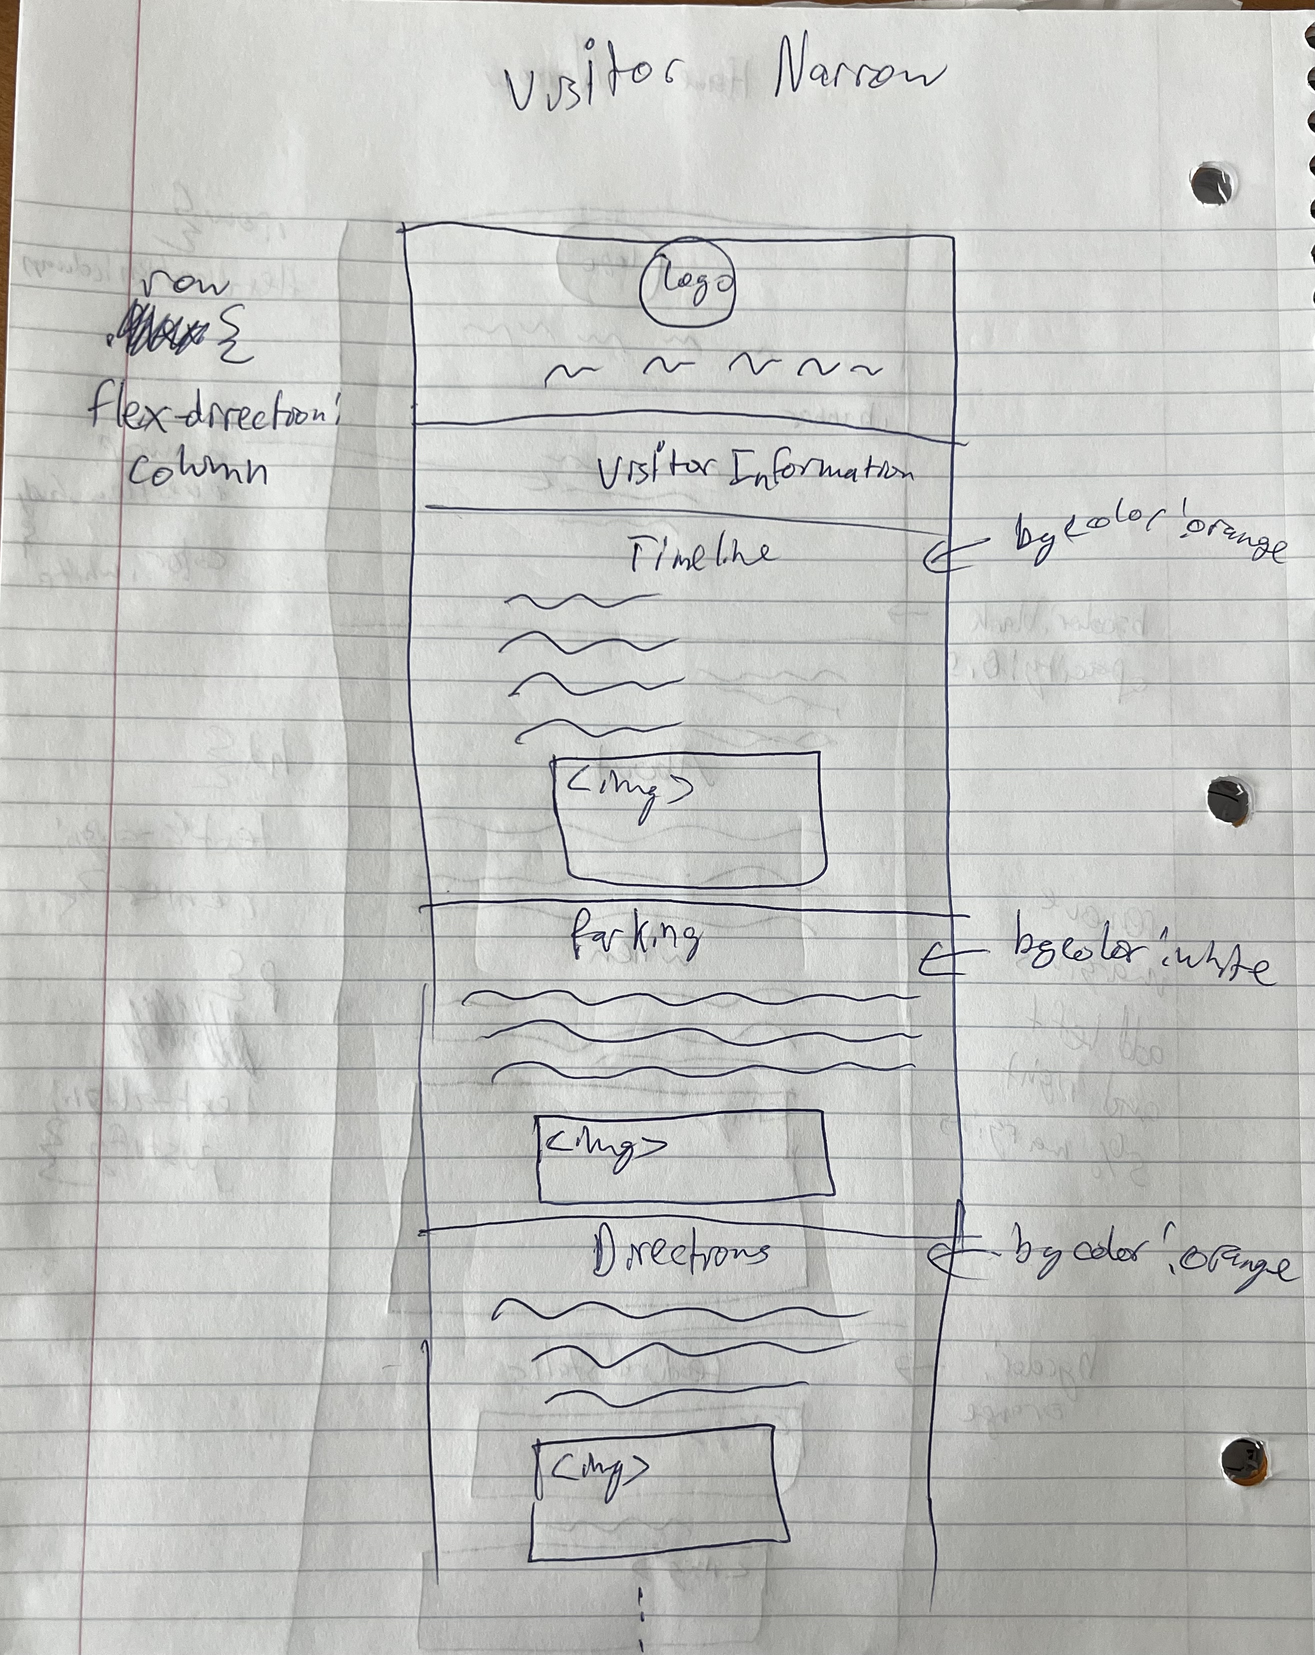 Visitor Narrow
logo
row
{
flex-direction:
column
Visitor Information
Timeline
bgcolor: orange
<img>
Parking
bgcolor: white
<img>
Directions
bgcolor: orange
<img>